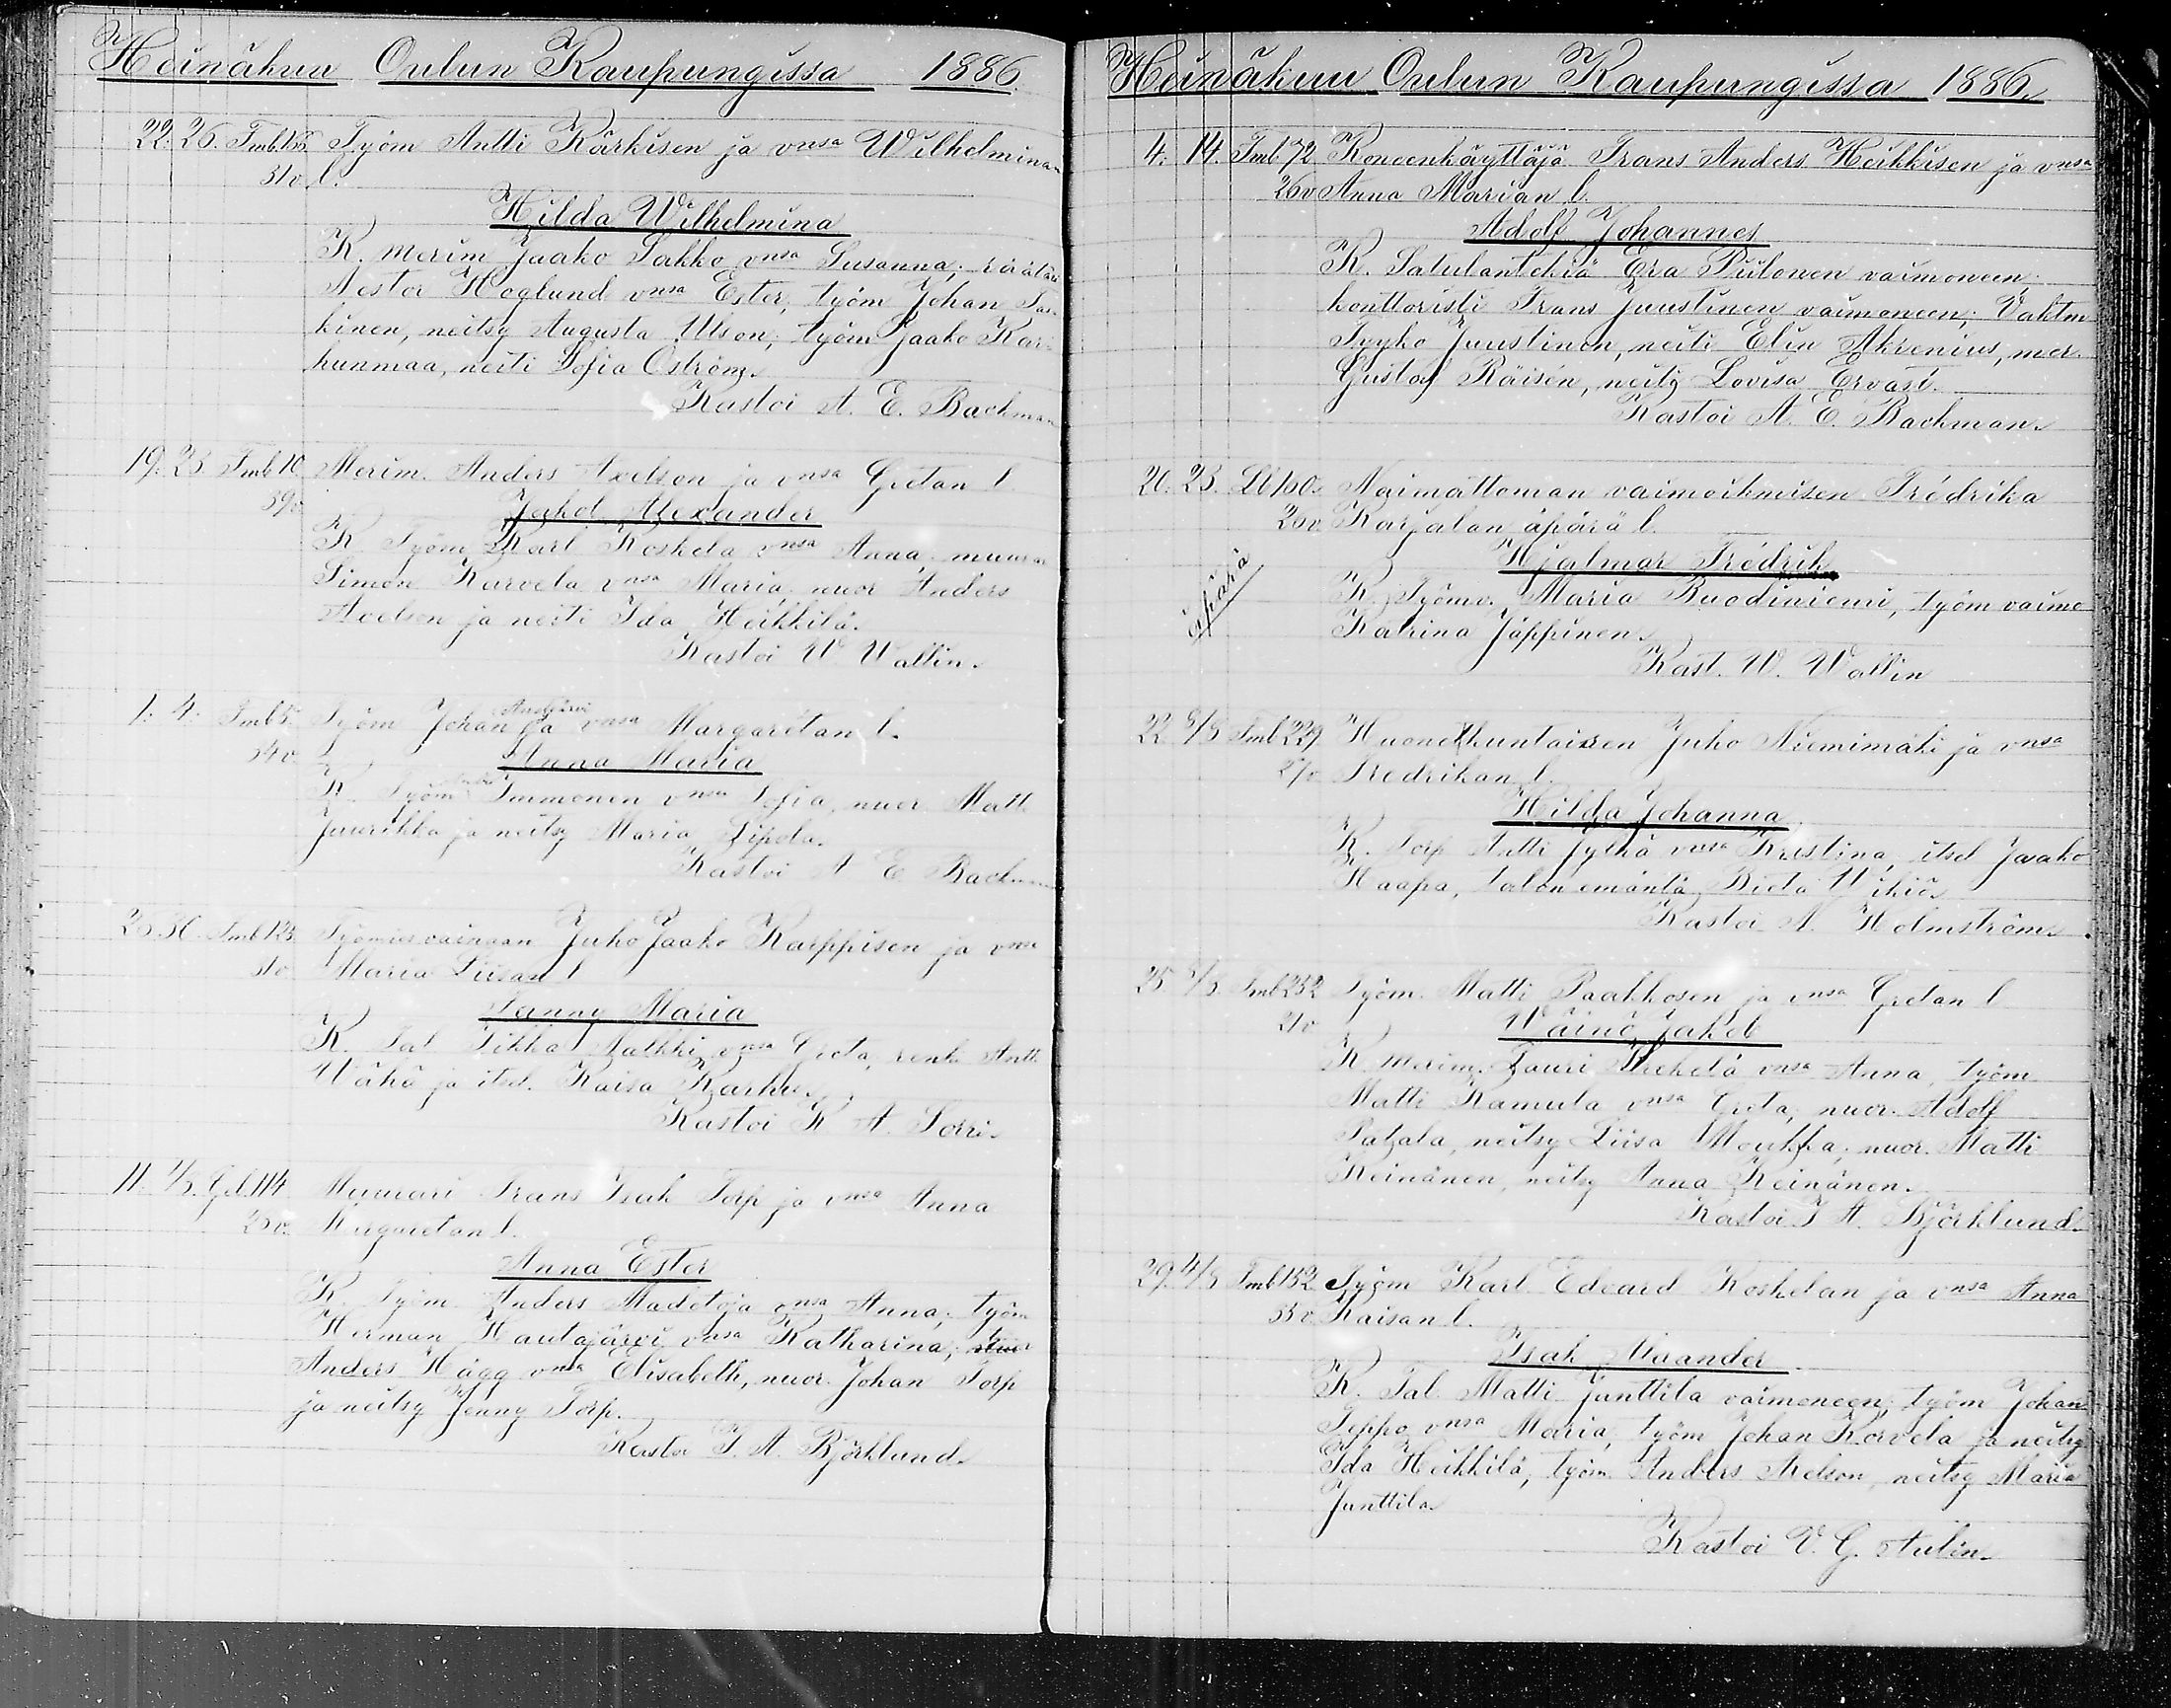 Heinäkuu Oulun Kaupungissa 1886.
22. 26. Tmb. 155. Työm Antti Kärkisen ja vnsa Wilhelminan
31v l.
Hilda Wilhelmina
K. merim Jaako Sakko vnsa Susanna; räätäli
Nestor Höglund vnsa Ester, työm Johan
kinen, neitsy Augusta Ulson; työm Jaako Kar-
hunmaa, neiti Sofia Öström.
Kastoi A. E. Backman
19. 23. Tmb 10 Merim. Anders Axelson ja vnsa Gretan l.
39v
Jakob Alexander
K Työm Karl Koskela vnsa Anna, muurar
Simon Karvela vnsa Maria, nuor Anders
Axelson ja neiti Ida Heikkilä.
Kastoi W Wallin.
1. 4. Tmb 5. Työm Johan ja vnsa Margaretan l.
34v
Anna Maria
K. Työm Immonen vnsa Sofia, nuor Matt
Juurikka ja neitsy Maria Sipola.
Kastoi A E Backman
25 30. Tmb 123 Työmies vainaan Juho Jaako Karppisen ja vnsa
31v Maria Liisan l
Fanny Maria
K. Tal Pikka vnsa Greta, renk Antti
Wähä ja itsel. Kaisa Karhu.
Kastoi K A. Sorri.
11. 1/8. Gel. 114 Muurari Frans Isak Torp ja vnsa Anna
25v. Margaretan l.
Anna Ester
K. Työm Anders Madetoja vnsa Anna; työm
Herman Hautajärvi vnsa Katharina;
Anders Hägg vnsa Elisabeth, nuor. Johan Torp
ja neitsy Jenny Torp.
Kastoi J. A. Björklund.
Heinäkuu Oulun Kaupungissa 1886.
4. 14 Tmb 72 Koneenkäyttäjä Frans Anders Heikkisen ja vnsa
26v Anna Marian l.
Adolf Johannes
K. Satulantekiä Era Piilonen vaimoneen;
konttoristi Frans Juustinen vaimoneen; Vahtm
Tyyko Juustinen, neiti Elin Akrenius, mer.
Gustaf Räisén, neitsy Lovisa Ervast.
Kastoi A. E. Backman.
20. 23. Ll 160. Naimattoman vaimoihmisen Frédrika
26v. Karjalan äpärä l.
Hjalmar Frédrik
äpärä
K. Työmv. Maria Ruodiniemi, työm vaimo
Katrina Jäppinen.
Kast. W. Wallin
22 3/8 Tmb 229. Huonekuntaisen Juho Niemimäki ja vnsa
27v Fredrikan l.
Hilda Johanna
K. Torp Antti Jylhä vnsa Kristina, itsel Jaako
Haapa, talon emäntä Brita
Kastoi A. Holmström.
25 1/8. Tmb 252 Työm. Matti Paakkosen ja vnsa Gretan l
21v
Wäinö Jakob
K. merim. Lauri vnsa Anna, työm
Matti Ramula vnsa Greta, nuor. Adolf
Patala, neitsy Liisa Moukka; nuor. Matti
Keinänen, neitsy Anna Keinänen.
Kastoi J A. Björklund.
29. 4/8 Tmb 152 Työm Karl Edvard Koskelan ja vnsa Anna
33v Kaisan l.
Isak Maander
K. Tal Matti Junttila vaimoneen; työm Johan
Seppo vnsa Maria, työm Johan Korvela ja neitsy
Ida Heikkilä, työm Anders Axelson, neitsy Maria
Junttila.
Kastoi V. G. Aulin.